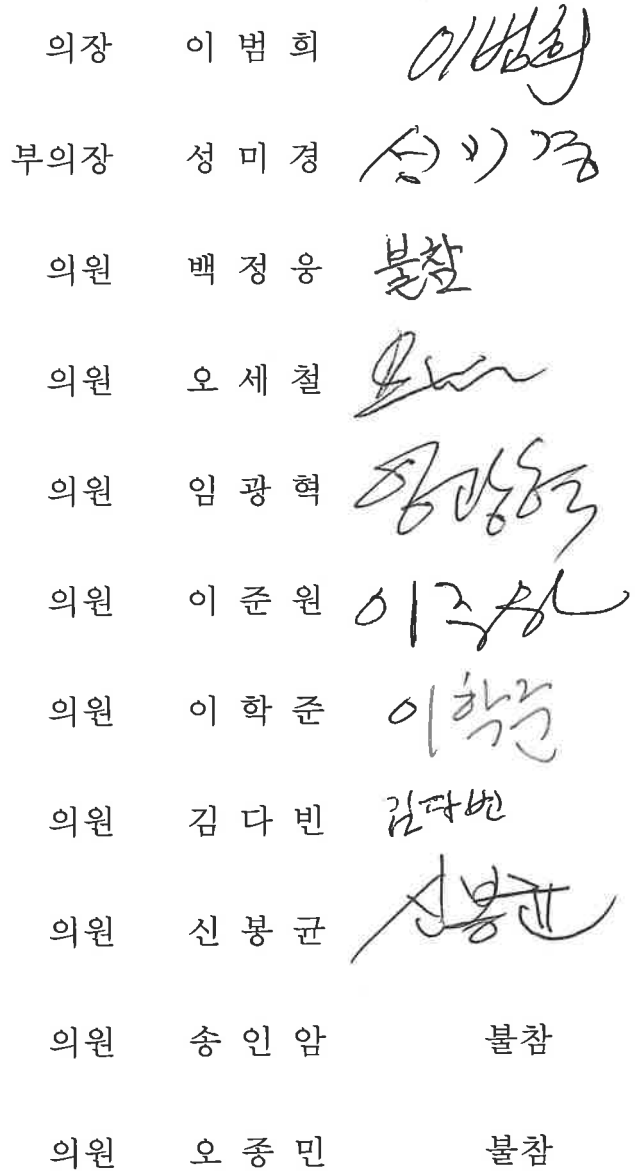 의장 이 범 희 이범희
부의장 성 미 경 성미경
의원 백 정 웅 불참
의원 오 세 철
의원 임 광 혁 임광혁
의원 이 준 원 이준원
의원 이 학 준 이학준
의원 김 다 빈 김다빈
의원 신 봉 균 신봉균
의원 송 인 암 불참
의원 오 종 민 불참